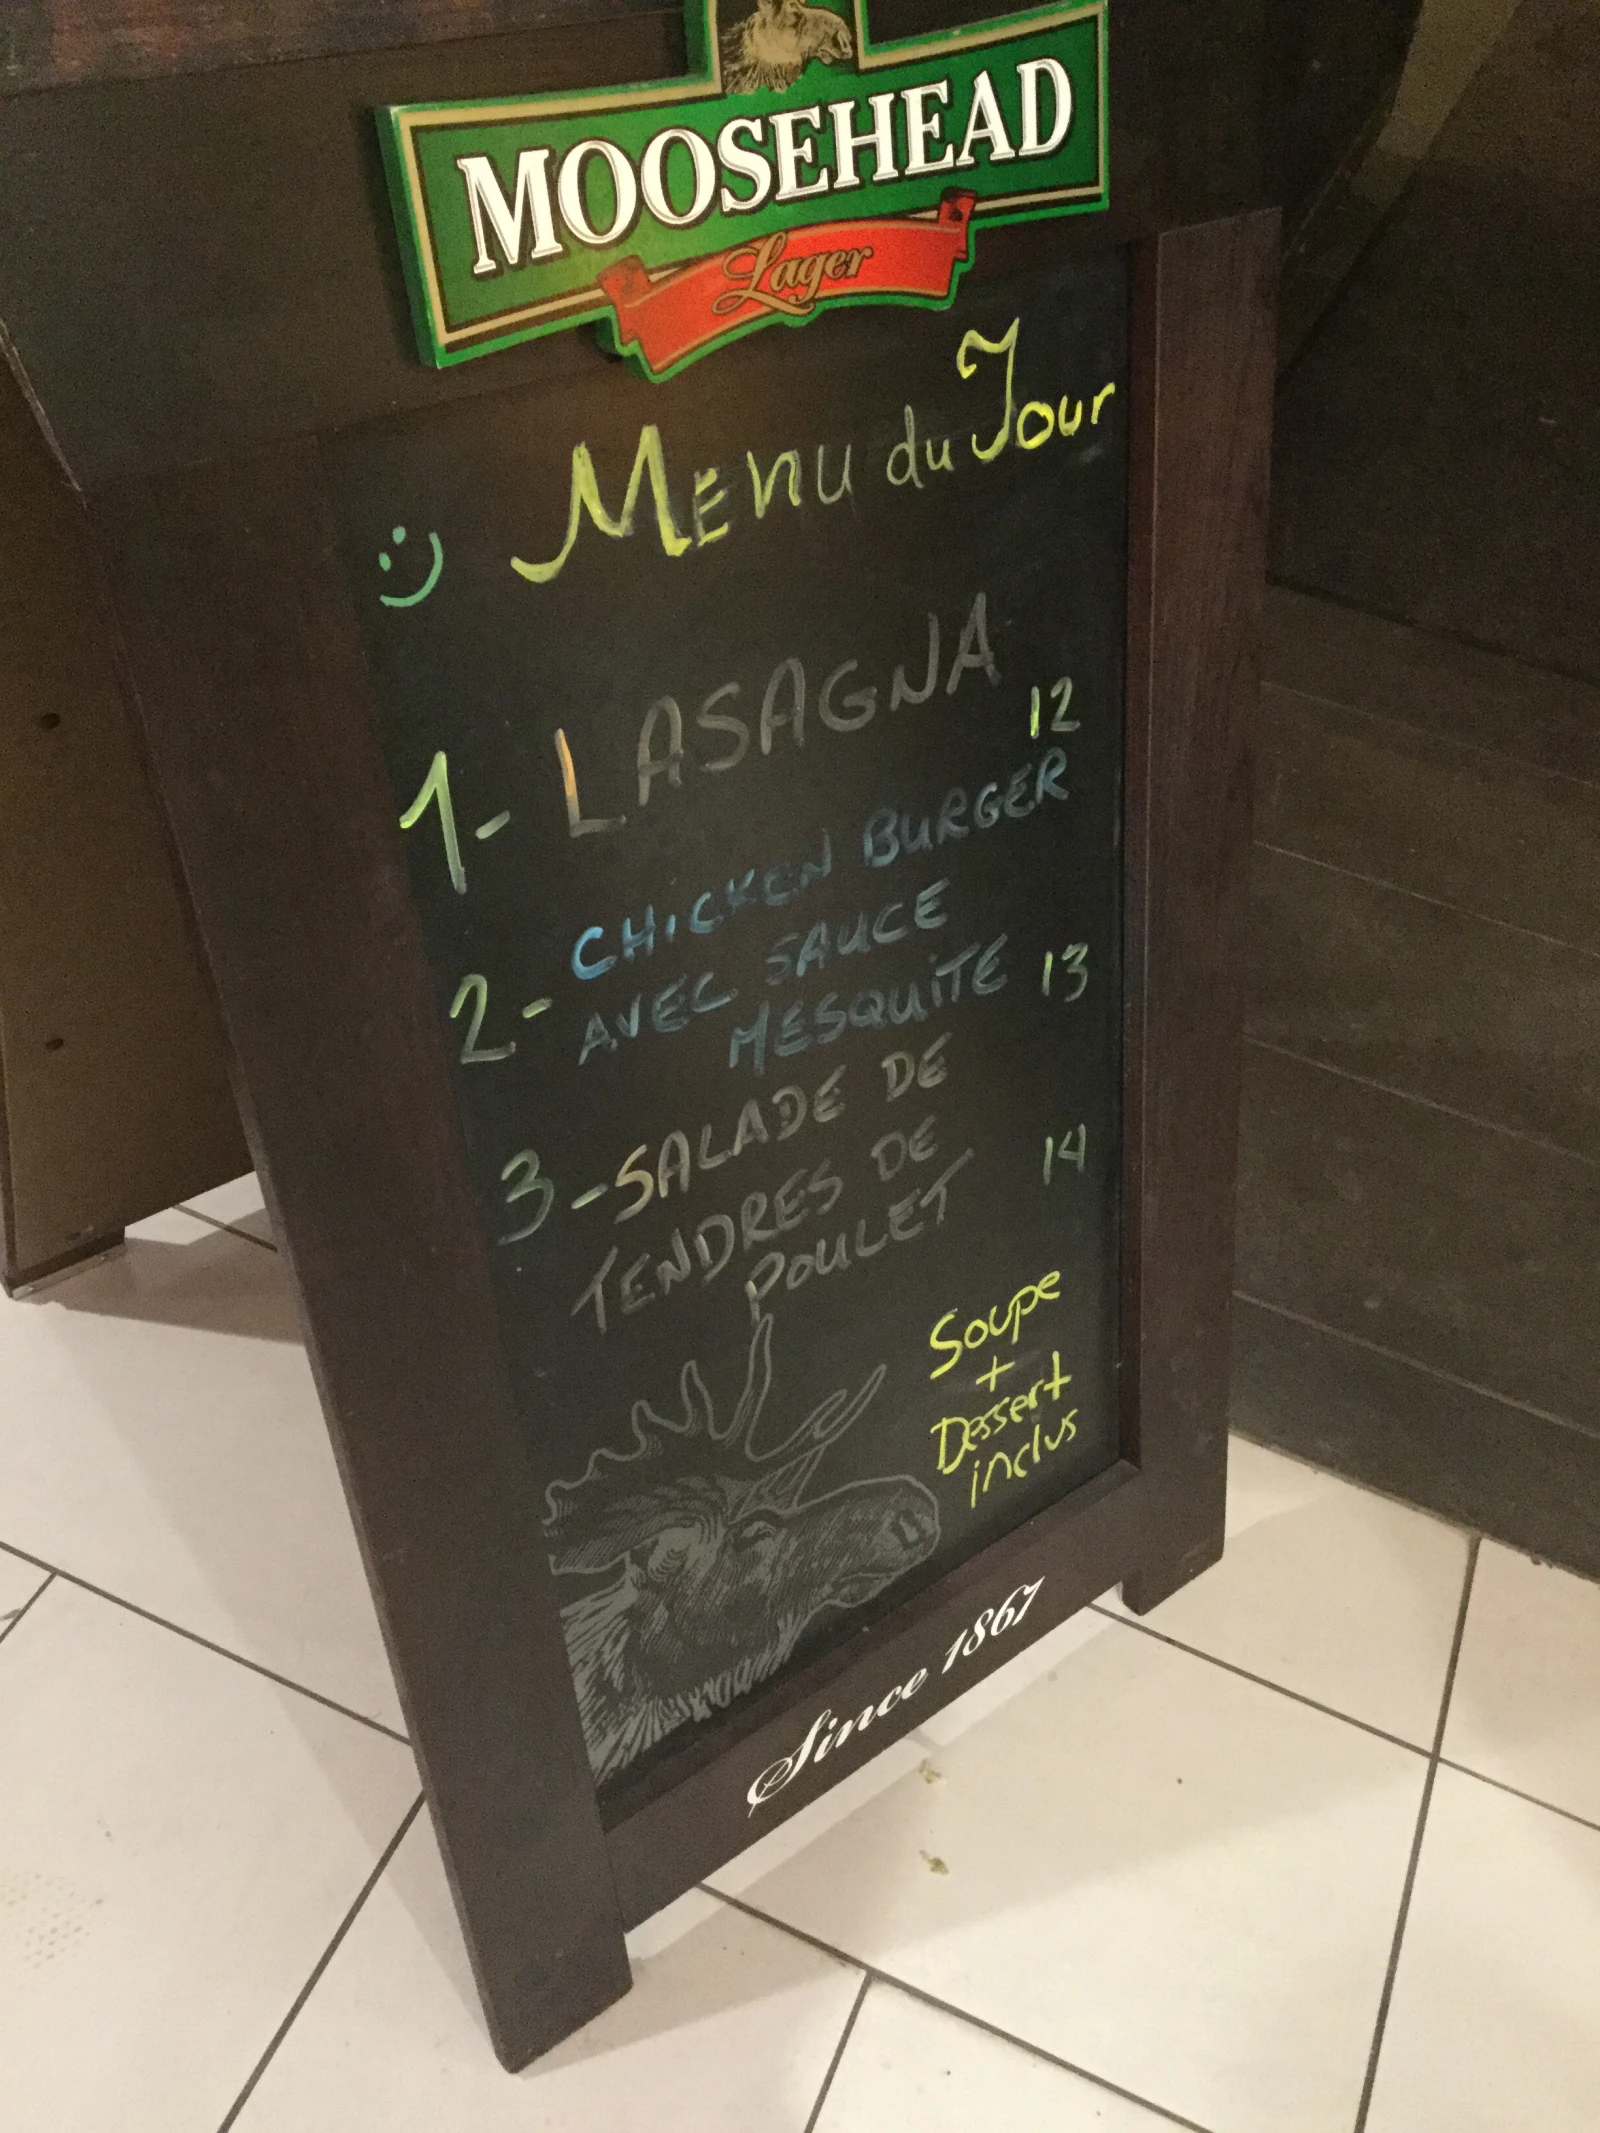 MOOSEHEAD
Lager
Menu du Jour
:)
1- LASAGNA
12
2- CHICKEN BURGER
AVEC SAUCE
MESQUITE 13
3- SALADE DE
TENDRES DE 14
POULET
Soupe
+
Dessert
inclus
Since 1867